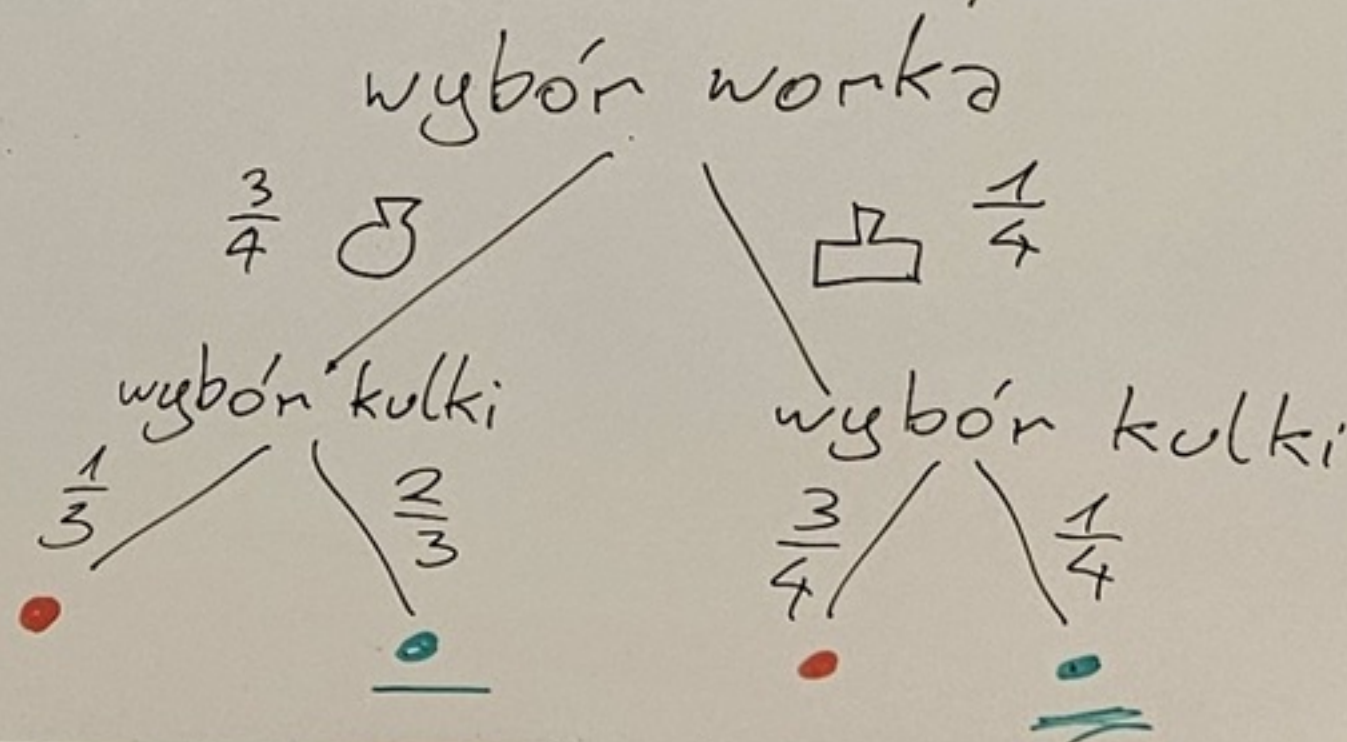 wybór worka
3/4 1/4
wybór kulki wybór kulki
1/3 2/3 3/4 1/4